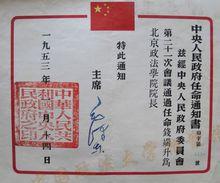 中央人民政府任命通知書
茲經中央人民政府委員會
第二十一次會議通過任命錢端升為
北京政法學院院長
特此通知
主席
毛澤東
一九五三年
月十四日
中華人民共和國中央人民政府之印